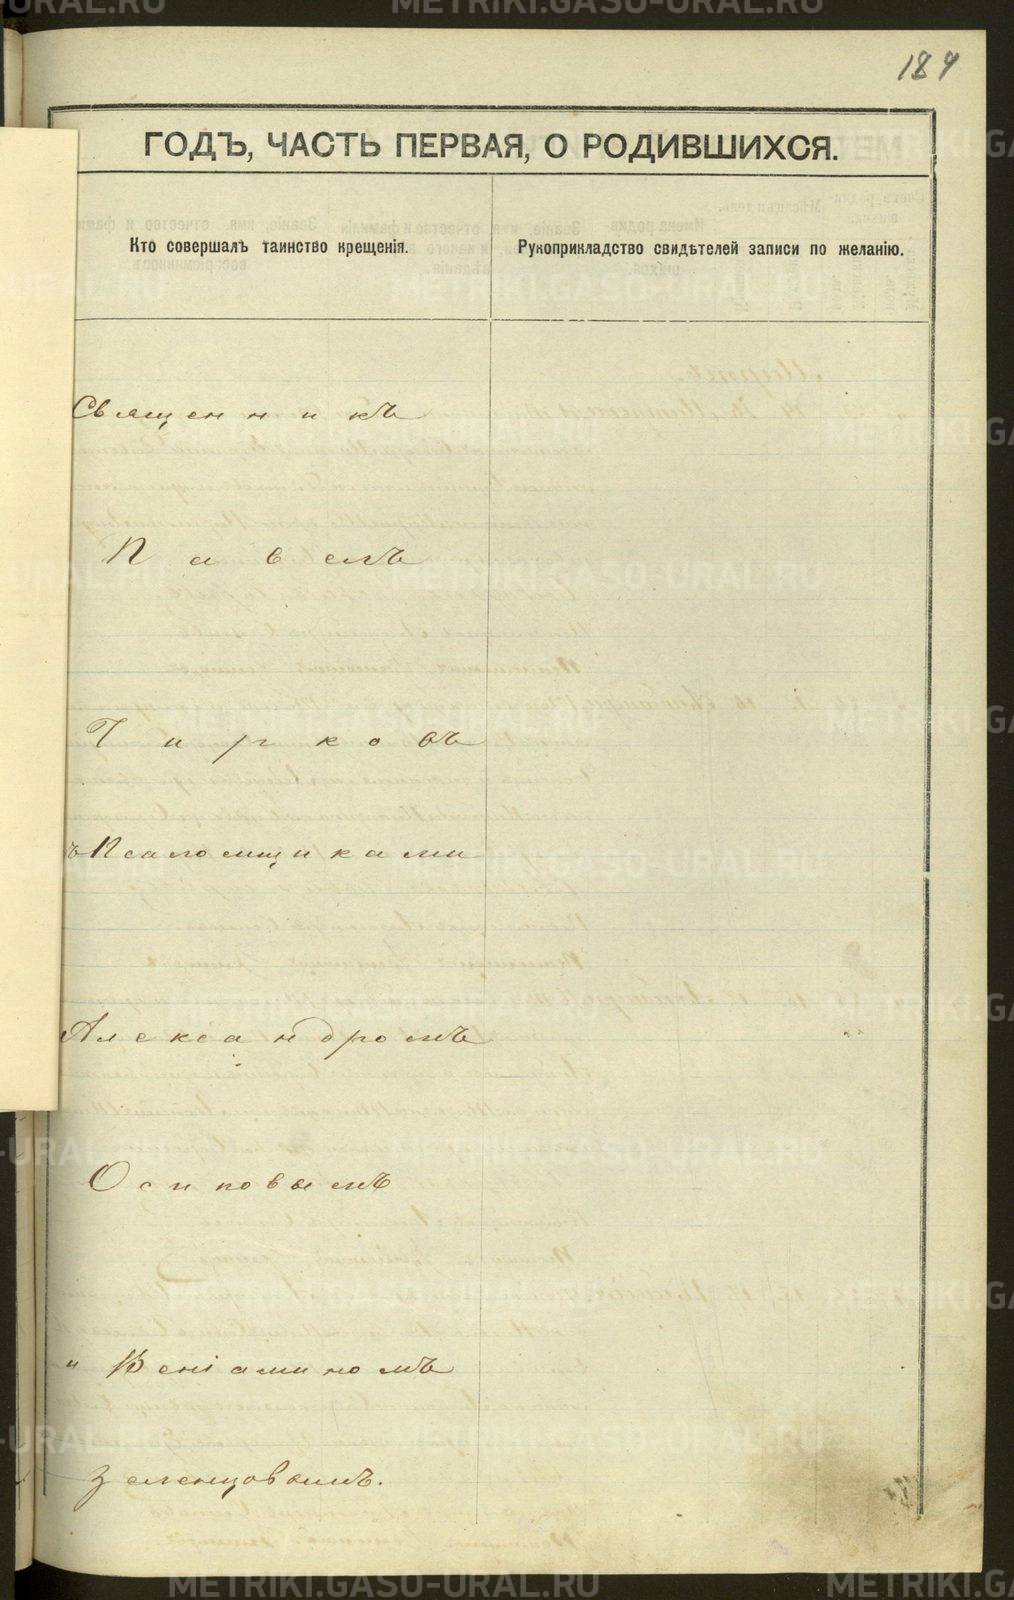 187
ГОДЪ, ЧАСТЬ ПЕРВАЯ, О РОДИВШИХСЯ.
Кто совершалъ таинство крещенія.
Рукоприкладство свидѣтелей записи по желанію.
Священникъ
Павелъ
Гирковъ
ъ Псаломщиками
Александромъ
Осиповымъ
и Веніаминомъ
Зеленцовымъ.
METRIKI.GASO-URAL.RU